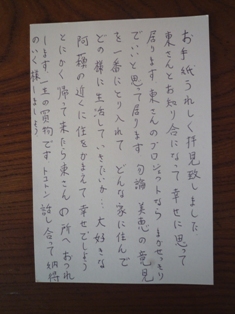 お手紙うれしく拝見致しました
東さんとお知り合になって幸せに思って
居ります 東さんのプロジェクトなら まかせっきり
でいいと思って居ります 勿論 美恵の意見
を一番にとり入れて どんな家に住んで
どの様に生活していきたいか… 大好きな
阿蘇の近くに住をかまえて 幸せでしょう
とにかく 帰って来たら東さんの所へおつれ
します 一生の買物です トコトン 話し合って 納得
のいく様しましょう